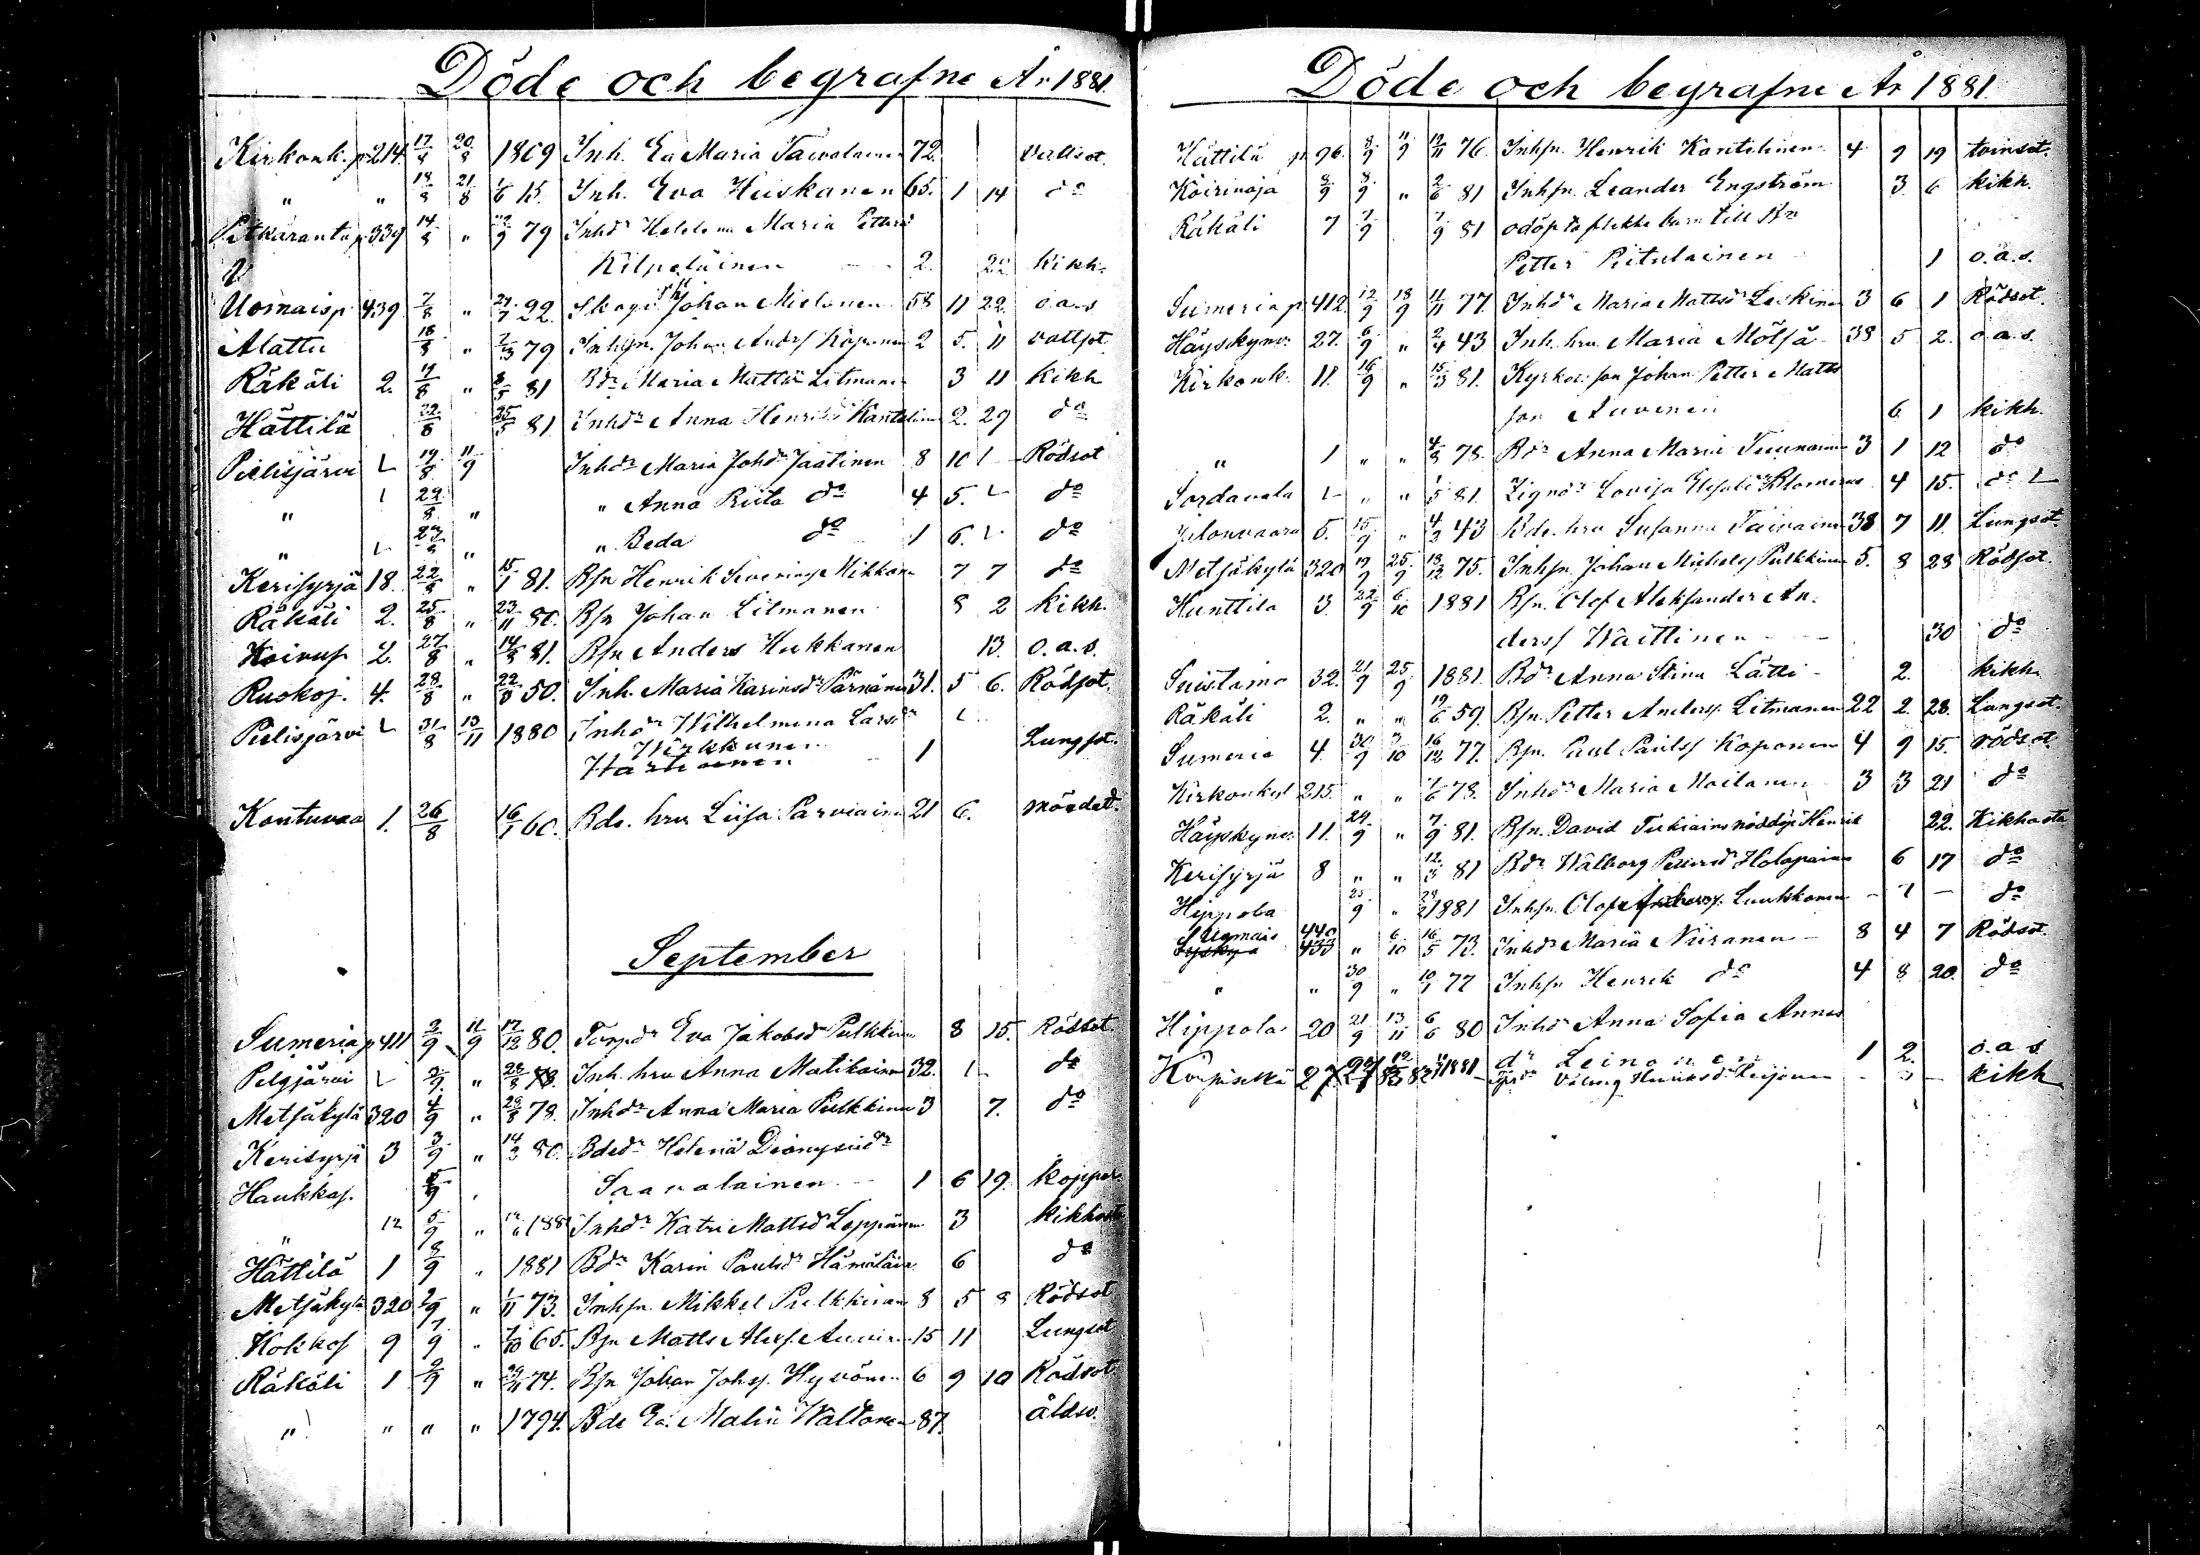 Döde och begrafne År 1881.
Kirkonk. p 214. 17/8 20/8 1809 Inh. Eva Maria Taivalainen 72. Vattsot.
" " 18/8 21/8 1/6 15. Inh. Eva Hiiskanen 65. 1 14 do
Pitkäranta p 339 14/8 " 22/9 79 Inhdr Helena Maria Petters
Kilpeläinen 2. 22 kikh.
Uomaisp. 439. 7/8 " 22. Johan Mielonen 58 11 22. o.a.s
Alattu 18/8 " 7/3 79 Inhsn. Johan Anders Koponen 2 5. 11 vattsot.
Räkäli 2. 19/8 " 8/5 81 Bdr Maria Mattsdr Litmanen 3 11 Kikh
Hättilä 22/8 25/5 81. Inhdr Anna Henriksdr Kantelinen 2. 29 do
Pielisjärvi 19/8 11/9 Inhdr Maria Johdr Jaatinen 8 10 Rödsot
" 22/8 " " Anna Riita do 4 5. do
" 27/8 " " Beda do 1 6. do
Kerisyrjä 18. 22/8 " 15/1 81. Bsn Henrik Severins Mikkonen 7 7 do
Räkäli 2. 25/8 " 23/11 80. Bsn Johan Litmanen 8 2 Kikh.
Koirus. 2. 27/8 " 14/8 81. Bsn Anders Hukkanen 13. o.a.s.
Ruskoj. 4. 28/8 " 22/3 50. Inh. Maria Karinsdr Pärnänen 31. 5 6. Rödsot.
Pielisjärvi 31/8 13/11 1880 Inhdr Wilhelmina Larsdr
Hirkkonen
1 Lungsot.
Kontuvaa 1. 26/8 16/1 60. Bde. hru Liisa Parviainen 21 6. mördad.
September
Sumeria p 411 2/9 11/9 17/12 80. Torpdr Eva Jakobsdr Pulkkinen 8 15. Rödsot.
Pelgjärvi 2/9 " Inh. hru Anna Matikainen 32. do
Metsäkylä 320 4/9 " 28/8 78. Inhdr Anna Maria Pulkkinen 3 7. do
Kerisyrjä 3 3/9 " 14/3 80. Bdedr Helena Dionysiidr
Haukkas. Saavalainen 1 6 19. koppor.
" 12 5/9 " Inhdr Katri Mattsdr Leppänen 3 kikhosta
Hättilä 1 8/9 " 1881 Bdr Karin Paulsdr Hämäläinen 6 do
Metsäkylä 320 2/9 " 1/11 73. Inhsn. Mikkel Pulkkinen 8 5 8 Rödsot
Kokkos 9 7/9 " 7/10 65. Bsn Matts Alexs. Auvinen 15 11 Lungsot
Räkäli 1 9/9 " 29/11 74. Bsn Johan Johss. Hyvönen 6 9 10 Rödsot
" " " " 1794. Bde Eva Malin Waltonen 87. åldsv.
Döde och begrafne År 1881.
Hättilä p 96. 8/9 11/9 19/11 76. Inhsn. Henrik Kantelinen 4 9 19 tvinsot.
Koirinoja 8/9 8/9 " 2/6 81 Inhsn Leander Engström 3 6 kikh.
Räkäli 7 7/9 7/9 81 odöpta flickebarn till Bn
Petter Piitulainen 1 o.a.s.
Sumeria p 412. 12/9 18/9 11/11 77. Inhdr Maria Mattsdr Leskinen 3 6 1 Rödsot.
Häyskynv. 27. 6/9 " 2/4 43 Inh. hru Maria Mölsä 38 5 2. o.a.s.
Kirkonk. 11. 16/9 " 15/3 81. Kyrkov. son Johan Petter Matts
son Auvinen 6 1 kikh.
" 1 " " 4/8 78. Bdr Anna Maria Tuunainen 3 1 12 do
Sordavala " " 1/5 81. Lovisa 4 15. do
Jalonvaara 5. 15/9 " 4/2 43 Bde. hru Susanna Taivainen 38 7 11. Lungsot
Metsäkylä 320 19/9 25/9 13/12 75. Inhsn. Johan Michelss Pulkkinen 5. 8 28 Rödsot.
Hunttila 3. 22/9 6/10 1881 Bsn. Olof Aleksander An-
derss Waittinen 30 do
Suistamo 32. 21/9 25/9 1881. Bdr Anna Stina Lätti 2. kikh.
Räkäli 2. " " 19/6 59. Bsn. Petter Anderss. Litmanen 22 2. 28. Lungsot.
Sumeria 4. 30/9 3/10 16/12 77. Bsn. Paul Paulss Koponen 4 9 15. rödsot.
Kirkonkyl 215. " " 7/6 78. Inhdr Maria Moilanen 3 3 21 do
Häyskynv. 11. 29/9 " 7/9 81. Bsn. David Tukiainen nöddöpt Henrik 22. Kikhosta
Kerisyrjä 8 " " 12/3 81 Bdr Walborg Pettersdr Holopainen 6 17 do
Hippola 25/9 " 1881 Inhsn. Olof Anderss. Luukkonen - 7 - do
Uomais 440
433 " 6/10 16/5 73. Inhdr Maria Niiranen 8 4 7 Rödsot.
" " 30/9 " 10/1 77 Inhsn Henrik do 4 8 20. do
Hippola 20 21/9 13/11 6/6 80 Inhdr Anna Sofia Annas
dr Leinonen 1 2. o.a.s.
27 1881 Henriksdr - 3 - kikh